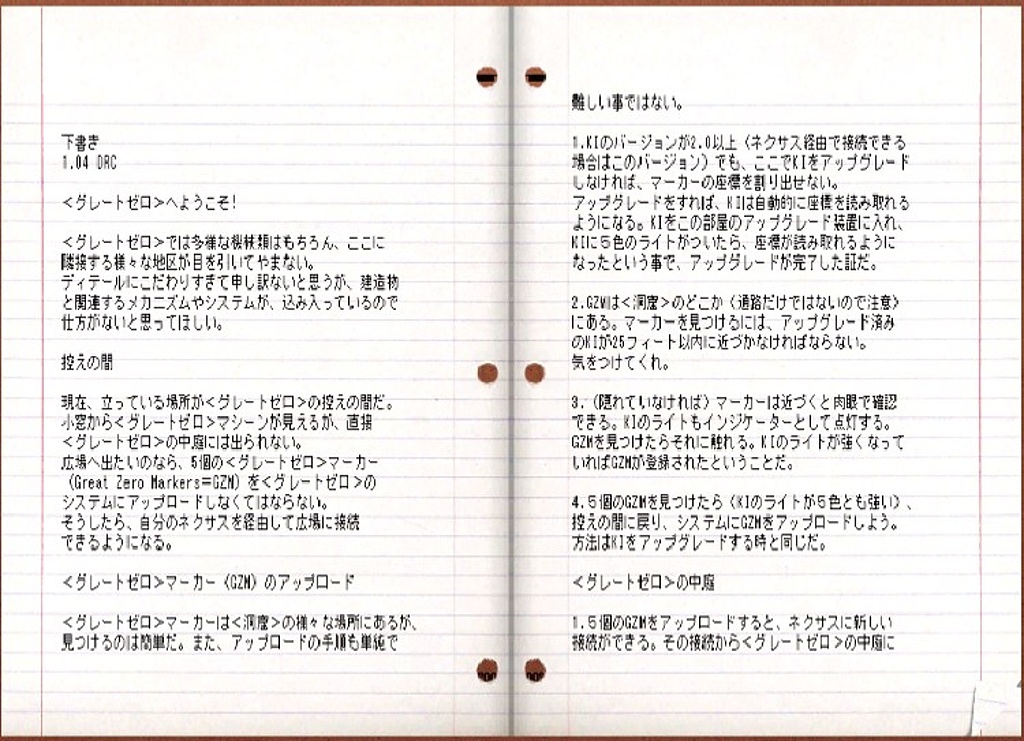 下書き
1.04 DRC
<グレートゼロ>へようこそ!
<グレートゼロ>では多様な機械類はもちろん、ここに
隣接する様々な地区が目を引いてやまない。
ディテールにこだわりすぎて申し訳ないと思うが、建造物
と関連するメカニズムやシステムが、込み入っているので
仕方がないと思ってほしい。
控えの間
現在、立っている場所が<グレートゼロ>の控えの間だ。
小窓から<グレートゼロ>マシーンが見えるが、直接
<グレートゼロ>の中庭には出られない。
広場へ出たいのなら、5個の<グレートゼロ>マーカー
(Great Zero Markers=GZM)を<グレートゼロ>の
システムにアップロードしなくてはならない。
そうしたら、自分のネクサスを経由して広場に接続
できるようになる。
<グレートゼロ>マーカー(GZM)のアップロード
<グレートゼロ>マーカーは<洞窟>の様々な場所にあるが、
見つけるのは簡単だ。また、アップロードの手順も単純で
難しい事ではない。
1.KIのバージョンが2.0以上(ネクサス経由で接続できる
場合はこのバージョン)でも、ここでKIをアップグレード
しなければ、マーカーの座標を割り出せない。
アップグレードをすれば、KIは自動的に座標を読み取れる
ようになる。KIをこの部屋のアップグレード装置に入れ、
KIに5色のライトがついたら、座標が読み取れるように
なったという事で、アップグレードが完了した証だ。
2.GZMは<洞窟>のどこか(通路だけではないので注意)
にある。マーカーを見つけるには、アップグレード済み
のKIが25フィート以内に近づかなければならない。
気をつけてくれ。
3.(隠れていなければ)マーカーは近づくと肉眼で確認
できる。KIのライトもインジケーターとして点灯する。
GZMを見つけたらそれに触れる。KIのライトが強くなって
いればGZMが登録されたということだ。
4.5個のGZMを見つけたら(KIのライトが5色とも強い)、
控えの間に戻り、システムにGZMをアップロードしよう。
方法はKIをアップグレードする時と同じだ。
<グレートゼロ>の中庭
1.5個のGZMをアップロードすると、ネクサスに新しい
接続ができる。その接続から<グレートゼロ>の中庭に